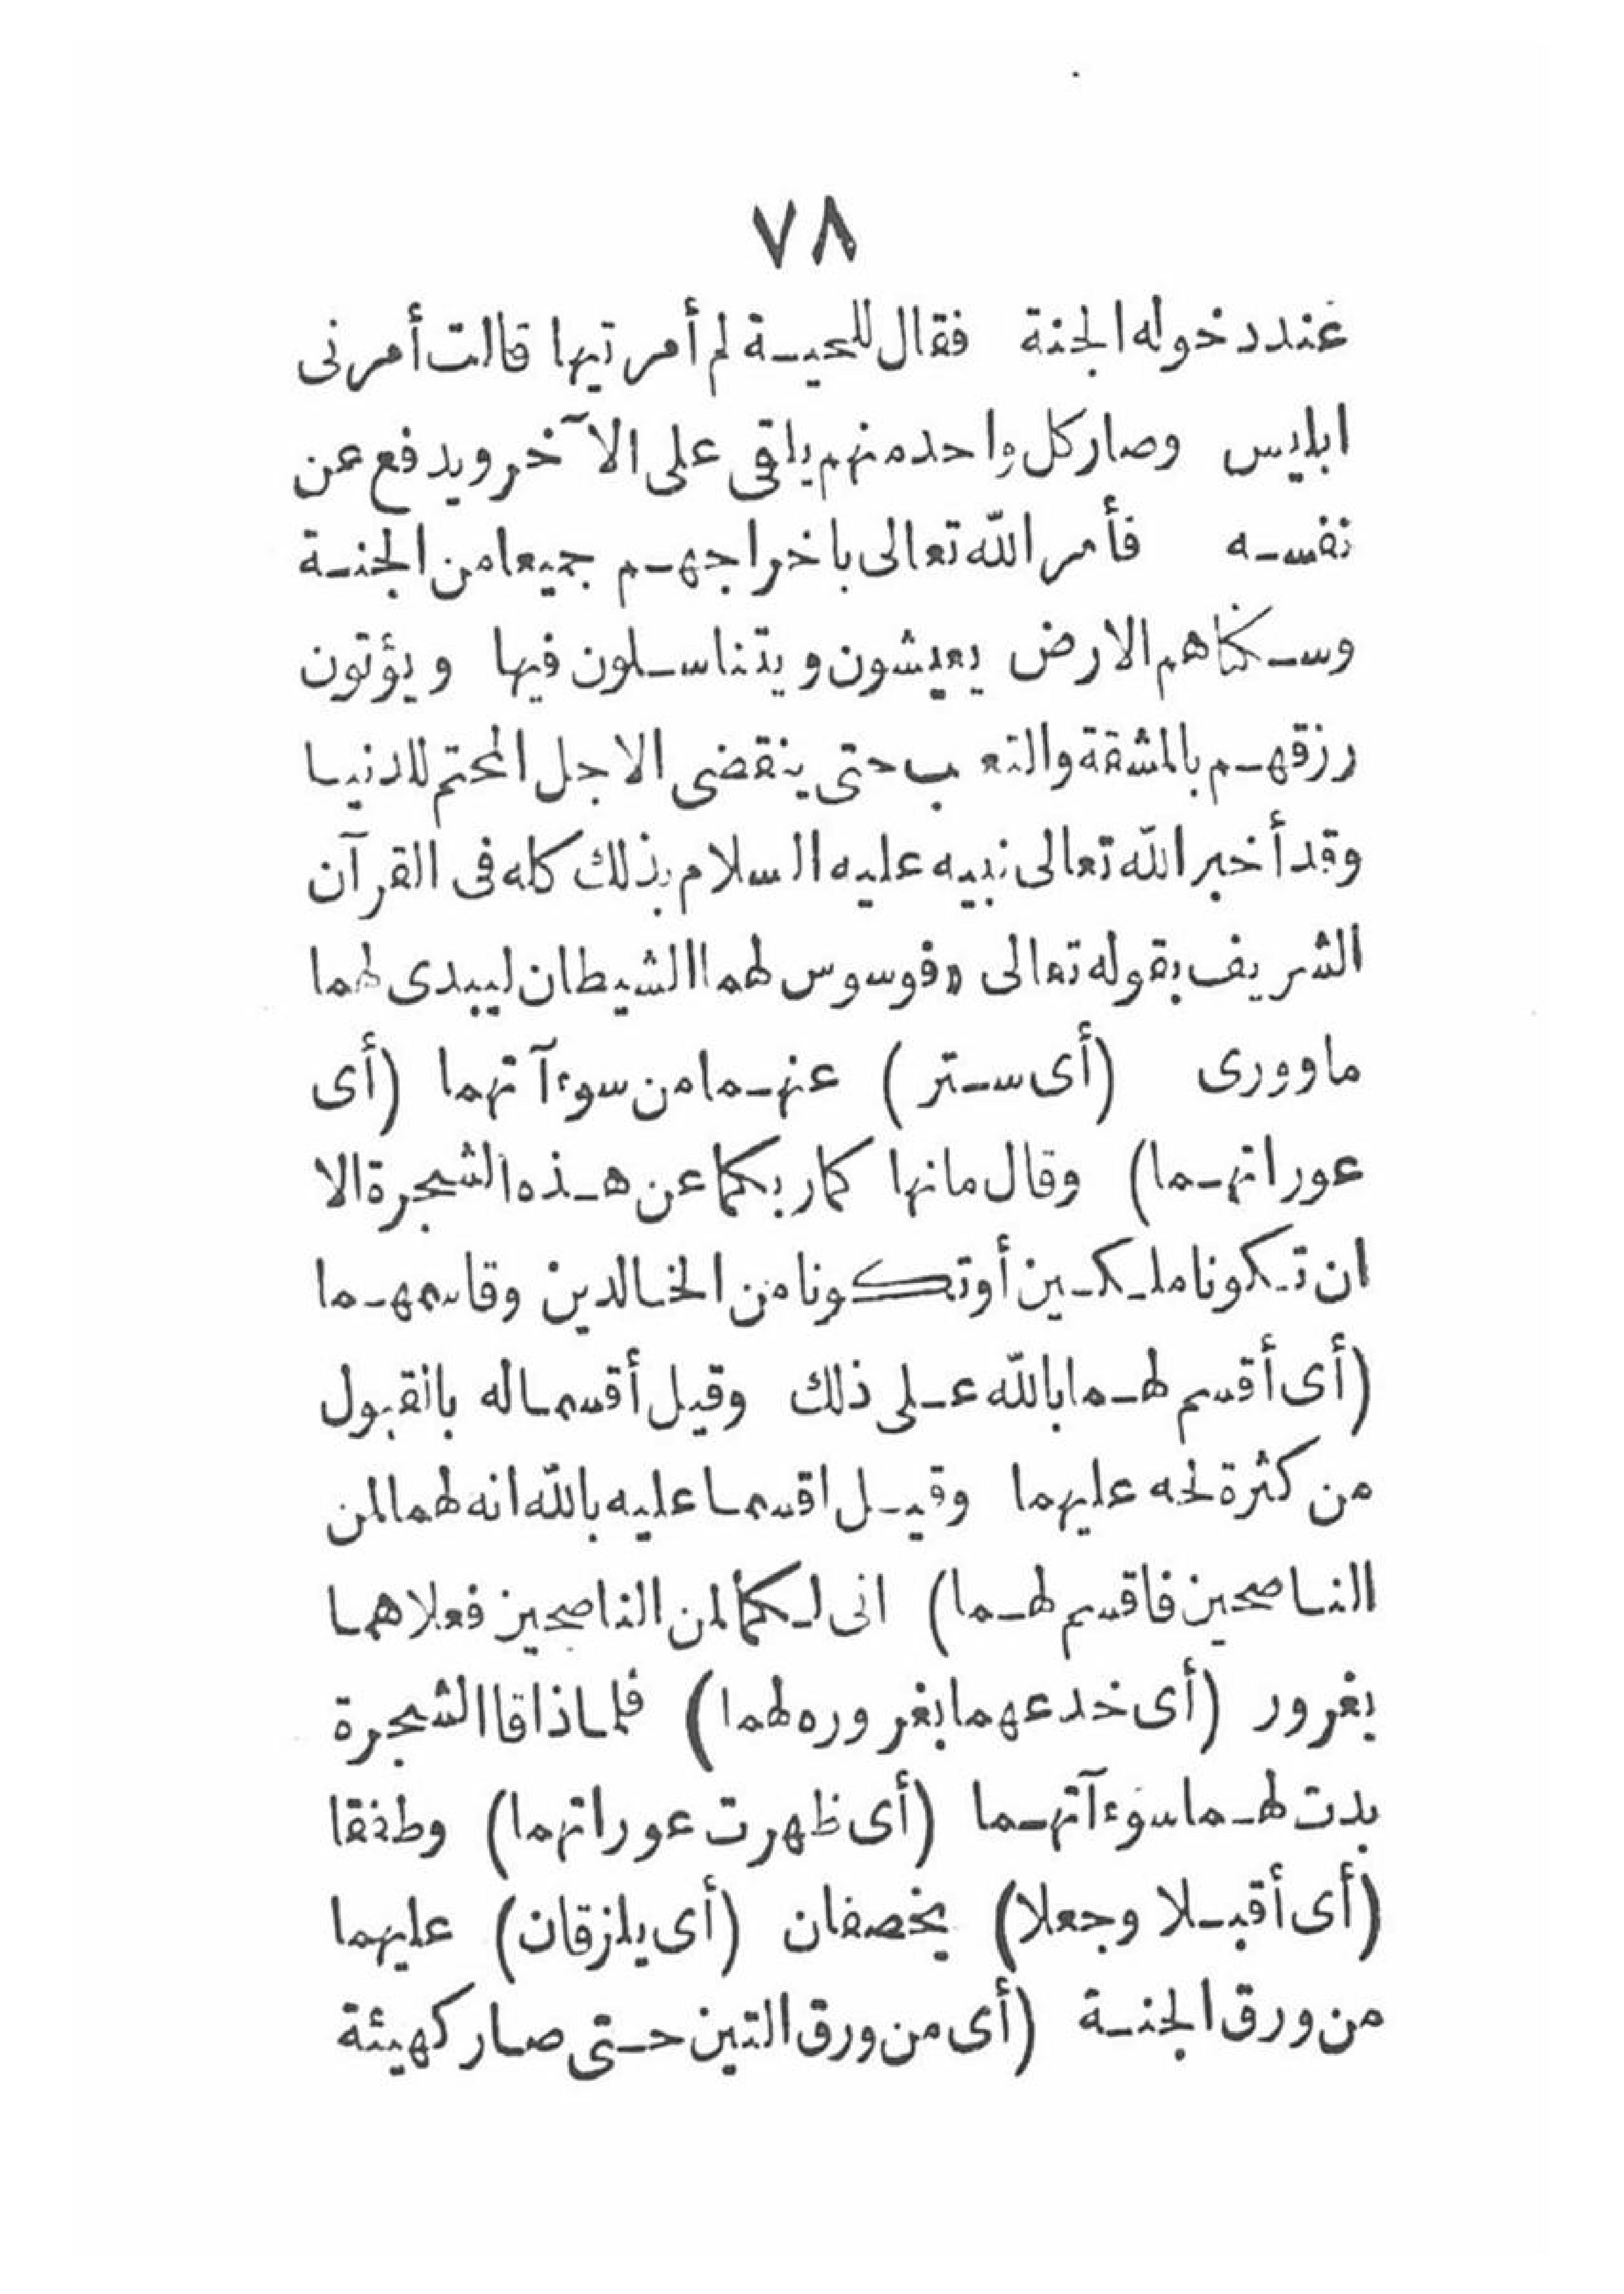 ٧٨
عند دخوله الجنة فقال للحية لم أمرتيها قالت أمرنى
ابليس وصار كل واحد منهم يلقى على الآخر ويدفع عن
نفسه فأمر الله تعالى باخراجهم جميعا من الجنة
وسكناهم الارض يعيشون ويتناسلون فيها ويؤتون
رزقهم بالمشقة والتعب حتى ينقضى الاجل المحتم للدنيا
وقد أخبر الله تعالى نبيه عليه السلام بذلك كله فى القرآن
الشريف بقوله تعالى «فوسوس لهما الشيطان ليبدى لهما
ما وورى (أى ستر) عنهما من سوءآتهما (أى
عوراتهما) وقال ما نها كما ربكما عن هذه الشجرة الا
ان تكونا ملكين أو تكونا من الخالدين وقاسمهما
(أى أقسم لهما بالله على ذلك وقيل أقسما له بالقبول
من كثرة لحه عليهما وقيل اقسما عليه بالله انه لهما لمن
الناصحين فاقسم لهما) انى لكما لمن الناصحين فعلاهما
بغرور (أى خدعهما بغروره لهما) فلما ذاقا الشجرة
بدت لهما سوءآتهما (أى ظهرت عوراتهما) وطفقا
(أى أقبلا وجعلا) يخصفان (أى يلزقان) عليهما
من ورق الجنة (أى من ورق التين حتى صار كهيئة